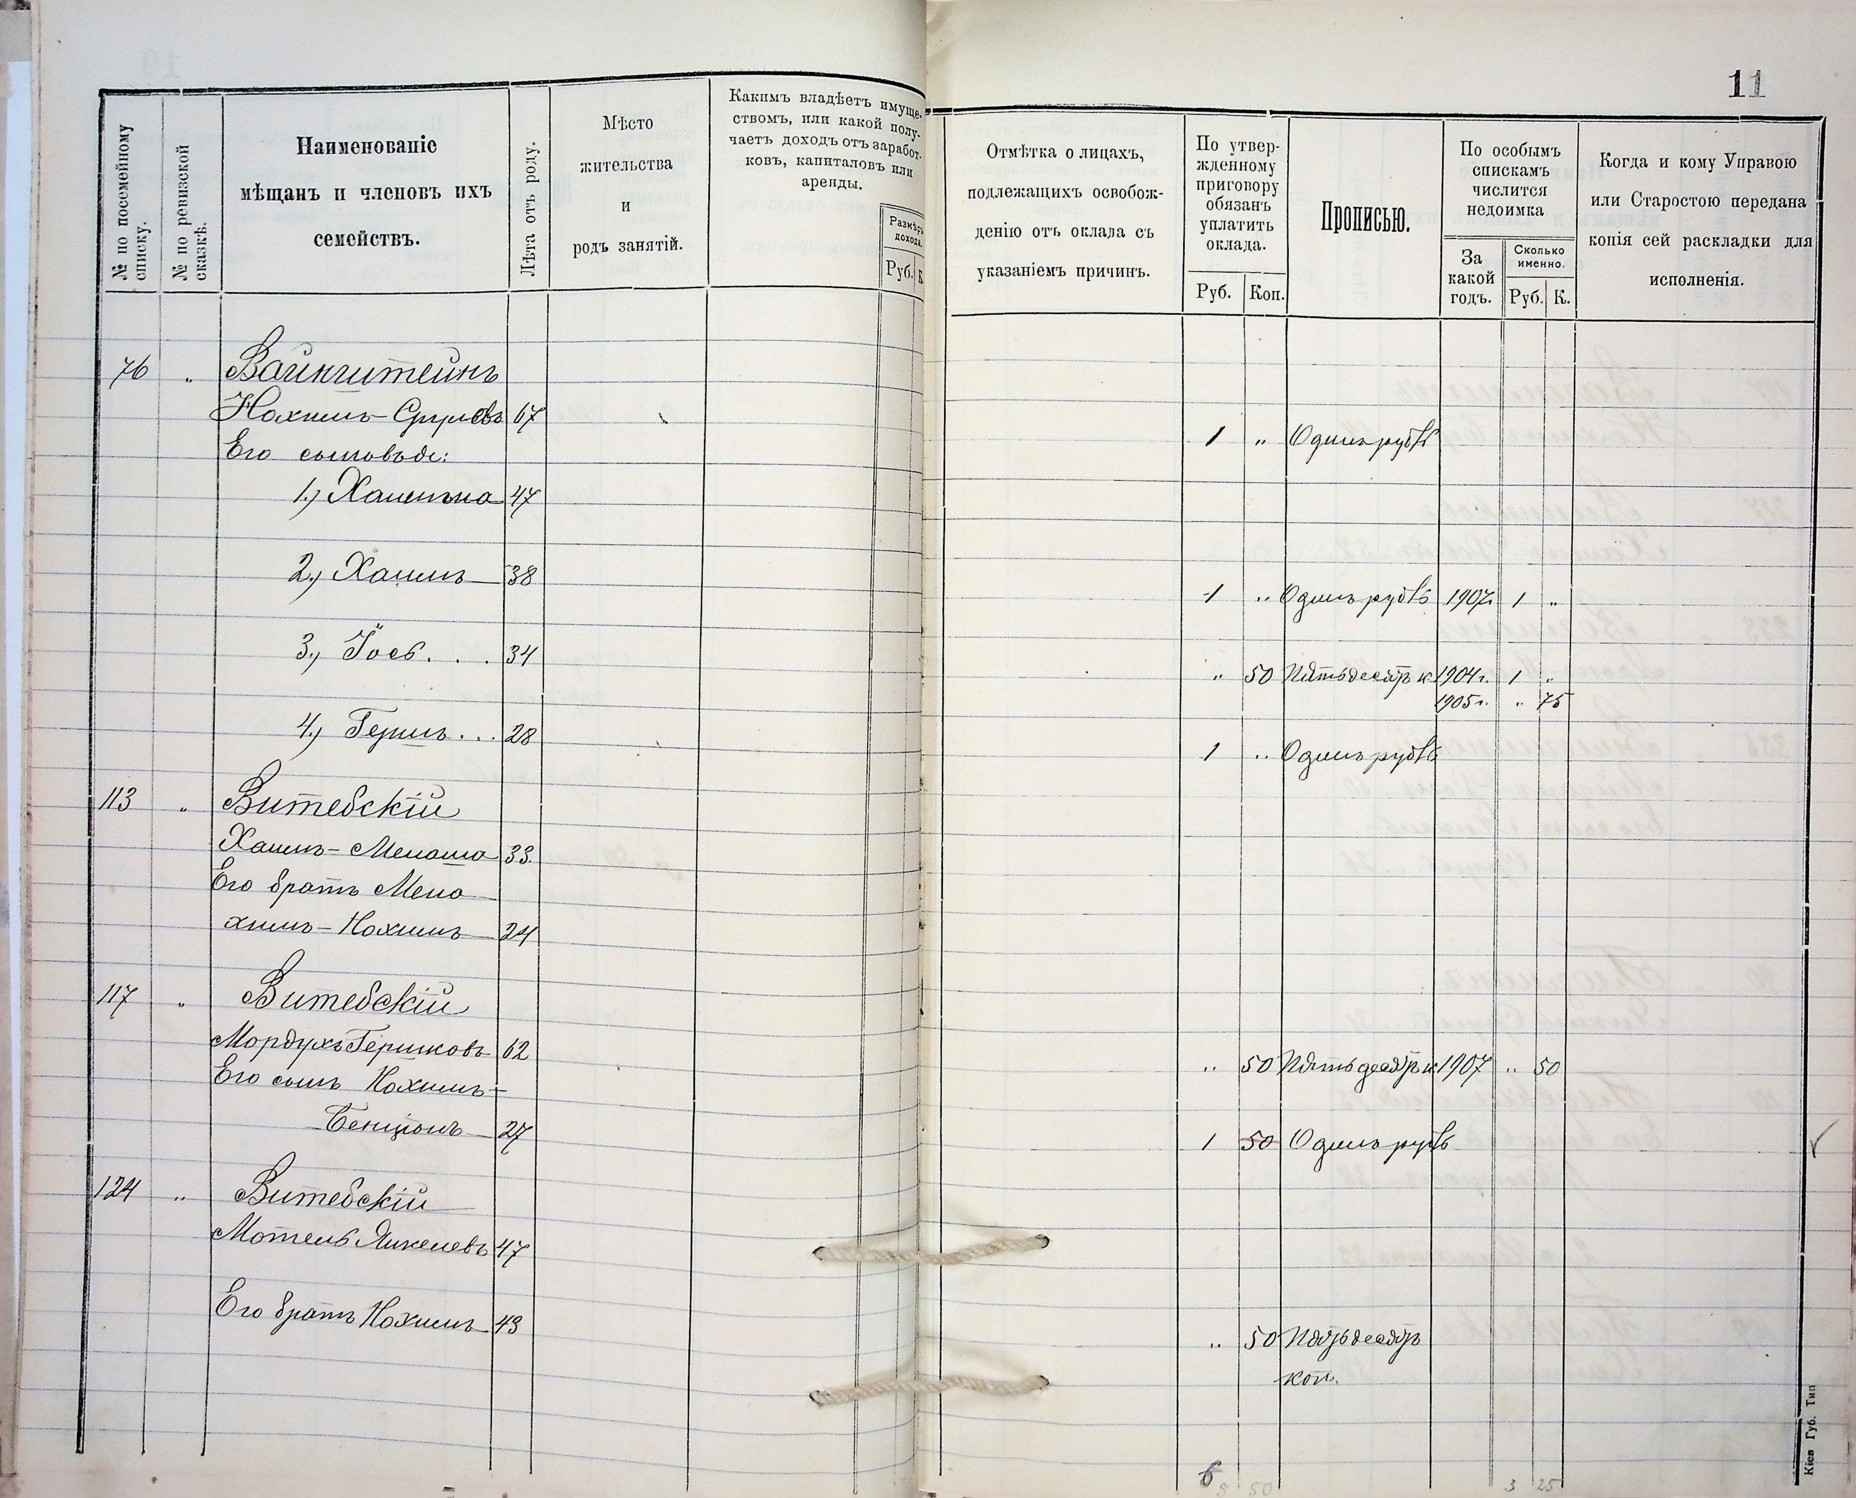 11
№ по посемейному списку.
№ по ревизской сказкѣ.
Наименованіе
мѣщанъ и членовъ ихъ
семействъ.
Лѣта отъ роду.
Мѣсто
жительства
и
родъ занятій.
Какимъ владѣетъ имуще-
ствомъ, или какой полу-
чаетъ доходъ отъ заработ-
ковъ, капиталовъ или
аренды.
Размѣръ
дохода.
Руб. К
Отмѣтка о лицахъ,
подлежащихъ освобож-
денію отъ оклада съ
указаніемъ причинъ.
По утвер-
жденному
приговору
обязанъ
уплатить
оклада.
Руб. Коп.
Прописью.
По особымъ
спискамъ
числится
недоимка
За
какой
годъ.
Сколько
именно.
Руб. К.
Когда и кому Управою
или Старостою передана
копія сей раскладки для
исполненія.
76 " Вайнштейнъ
Нохимъ-Сруловъ 67 1 " Одинъ рубль
Его сыновья:
1.) Хаимъ 47
2.) Хаимъ 38 1 " Одинъ рубль 1907г. 1 "
3.) Іось... 34 " 50 Пятьдесятъ к 1904г. 1 "
1905г. " 75
4.) Гершъ... 28 1 " Одинъ рубль
113 " Витебскій
Хаимъ-Менаша 33.
Его братъ Мена
химъ-Нохимъ 24
117 " Витебскій
Мордухъ Гершковъ 62 " 50 Пятьдесятъ к 1907 " 50
Его сынъ Нохимъ-
Бенціонъ 27 1 50 Одинъ рубль
124 " Витебскій
Мотель Янкелевъ 47
Его братъ Нохимъ 43 " 50 Пятьдесятъ
коп.
6 5 50 3 25
Кіев Губ. Тип